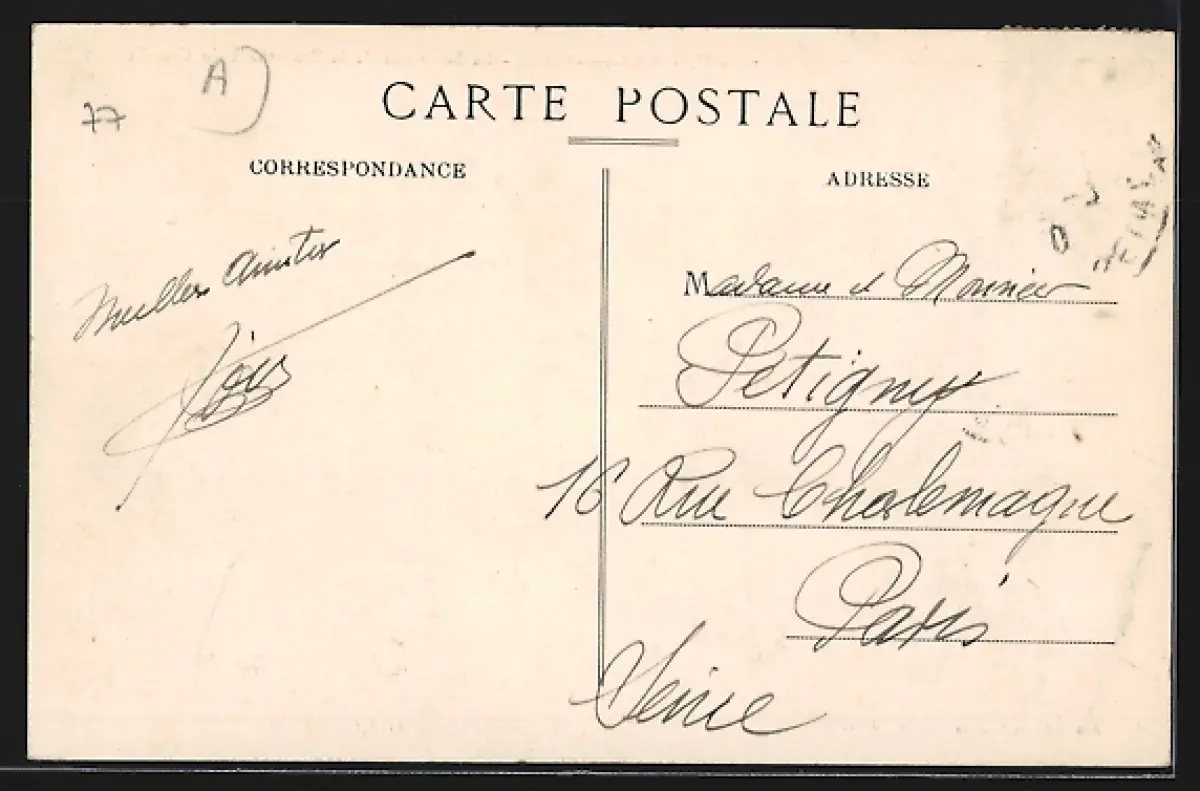 A)
77
CARTE POSTALE
CORRESPONDANCE
ADRESSE
Amities
Madame et Monsieur
Petigny
16 Rue Charlemagne
Paris
Seine